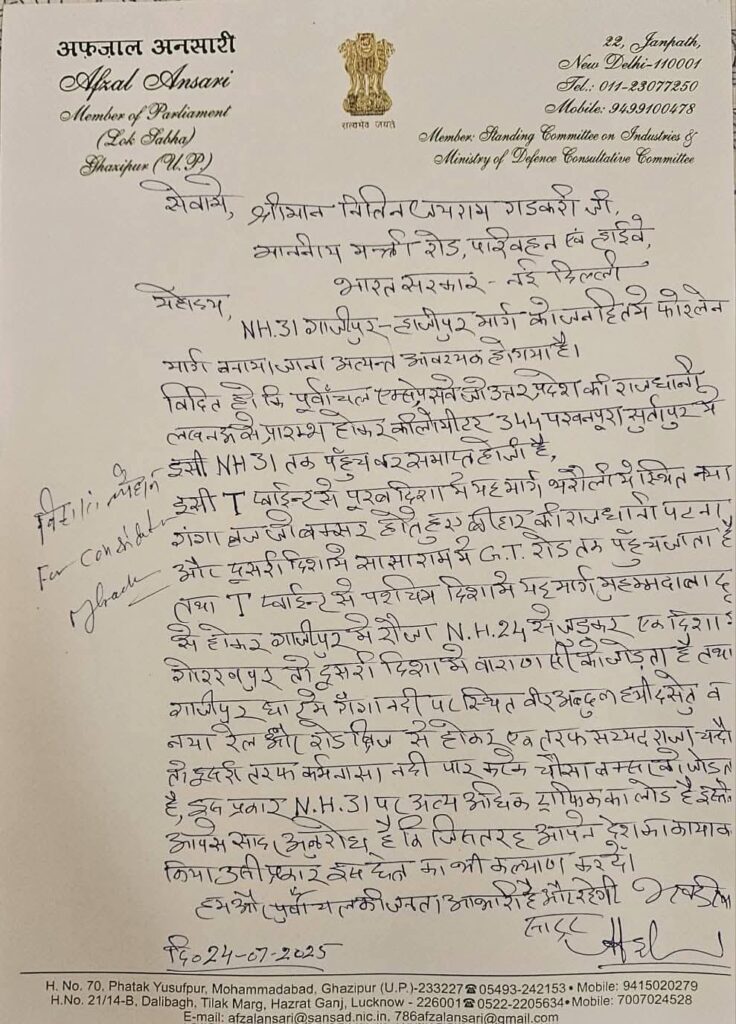 अफ़ज़ाल अनसारी
Afzal Ansari
Member of Parliament
(Lok Sabha)
Ghazipur (U.P.)
सत्यमेव जयते
22, Janpath,
New Delhi-110001
Tel.: 011-23077250
Mobile: 9499100478
Member: Standing Committee on Industries &
Ministry of Defence Consultative Committee
सेवामे, श्रीमान नितिन जयराम गडकरी जी,
माननीय मन्त्री रोड, परिवहन एवं हाईवे,
भारत सरकार - नई दिल्ली
महोदय,
NH.31 गाजीपुर-हाजीपुर मार्ग को जनहित मे फोरलेन
मार्ग बनाया जाना अत्यन्त आवश्यक हो गया है।
विदित हो कि पूर्वांचल एक्सप्रेसवे जो उत्तर प्रदेश की राजधानी
लखनऊ से प्रारम्भ होकर कीलोमीटर 344 पखनपुरा सुर्तापुर मे
इसी NH 31 तक पहुँच कर समाप्त होती है,
इसी T प्वाईन्ट से पूरब दिशा मे यह मार्ग भरौली मे स्थित नया
गंगा ब्रज जो बक्सर होते हुए बीहार की राजधानी पटना
और दूसरी दिशा मे सासाराम मे G.T. रोड तक पहुँच जाता है
तथा T प्वाईन्ट से पश्चिम दिशा मे यह मार्ग मुहम्मदाबाद
से होकर गाजीपुर मे रौजा N.H.24 से जुडकर एक दिशा
गोरखपुर तो दूसरी दिशा मे वाराणसी को जोड़ता है तथा
गाजीपुर मे गंगा नदी पर स्थित वीर अब्दुल हमीद सेतु व
नया रेल और रोड ब्रिज से होकर एक तरफ सय्यद राजा
तो दूसरी तरफ कर्मनासा नदी पार करके चौसा बक्सर को जोडता
है, इस प्रकार N.H.31 पर अत्य अधिक ट्राफिक का लोड है
आपसे सादर अनुरोध है कि जिस तरह आपने देश का
किया उसी प्रकार इस क्षेत्र का भी कल्याण कर दें।
हम और पूर्वांचल की जनता आभारी है और रहेगी
भवदीय
सादर
For Consideration
दि० 24-07-2025
H. No. 70, Phatak Yusufpur, Mohammadabad, Ghazipur (U.P.)-233227 ☎ 05493-242153 • Mobile: 9415020279
H.No. 21/14-B, Dalibagh, Tilak Marg, Hazrat Ganj, Lucknow - 226001 ☎ 0522-2205634 • Mobile: 7007024528
E-mail: afzalansari@sansad.nic.in, 786afzalansari@gmail.com